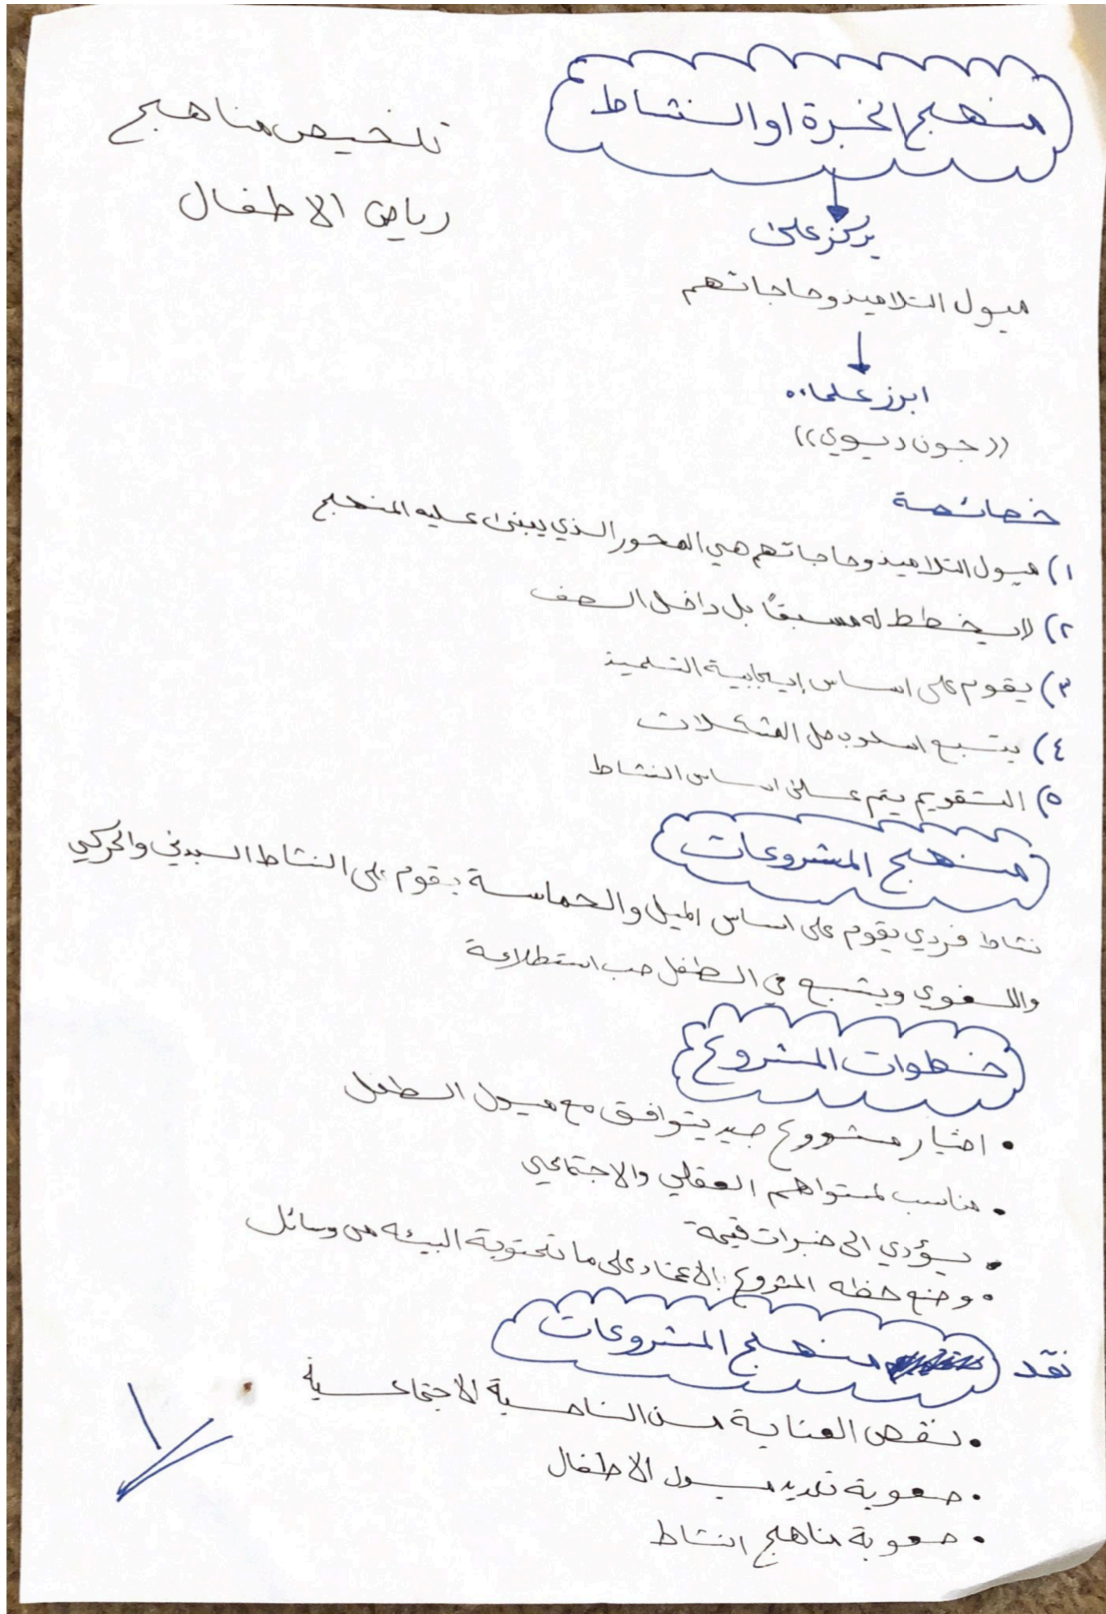 تلخيص مناهج
رياض الاطفال
منهج الخبرة او النشاط
يركز على
ميول التلاميذ وحاجاتهم
ابرز علماءه
((جون ديوي))
خصائصة
١) ميول التلاميذ وحاجاتهم هي المحور الذي يبنى عليه المنهج
٢) لا يخطط له مسبقاً بل داخل الصف
٣) يقوم على اساس إيجابية التلميذ
٤) يتبع اسلوب حل المشكلات
٥) التقويم يتم على اساس النشاط
منهج المشروعات
نشاط فردي يقوم على اساس الميل والحماسة يقوم على النشاط البدني والحركي
واللغوي ويشبع في الطفل حب استطلاعة
خطوات المشروع
• اختيار مشروع جيد يتوافق مع ميول الطفل
• مناسب لمستواهم العقلي والاجتماعي
• يؤدي الى خبرات قيمة
• وضع خطه المشروع بالاعتماد على ما تحتوية البيئه من وسائل
نقد منهج المشروعات
• نقص العناية من الناحية الاجتماعية
• صعوبة تحديد ميول الاطفال
• صعوبة مناهج انشاط